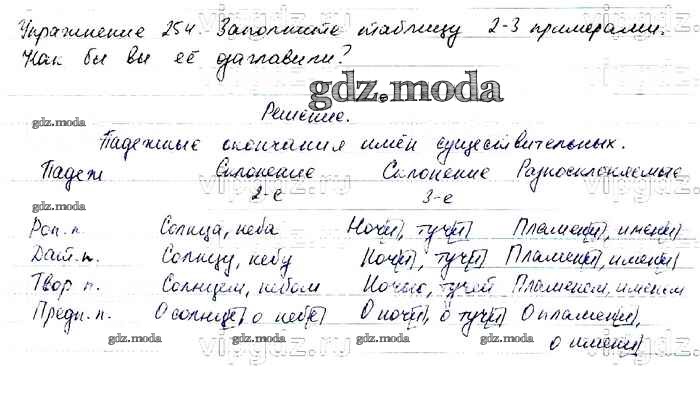 Упражнение 254. Заполните таблицу 2-3 примерами.
Как бы вы её озаглавили?
gdz.moda
Решение.
gdz.moda
Падежные окончания имён существительных.
Падеж Склонение Склонение Разносклоняемые
2-е 3-е
gdz.moda
Род.п. Солнца, неба Ночи, тучи Пламени, имени
Дат.п. Солнцу, небу Ночи, тучи Пламени, имени
Твор п. Солнцем, небом Ночью, тучей Пламенем, именем
Предл.п. О солнце, о небе О ночи, о тучи О пламени,
о имени
gdz.moda gdz.moda gdz.moda gdz.moda
vipgdz.ru